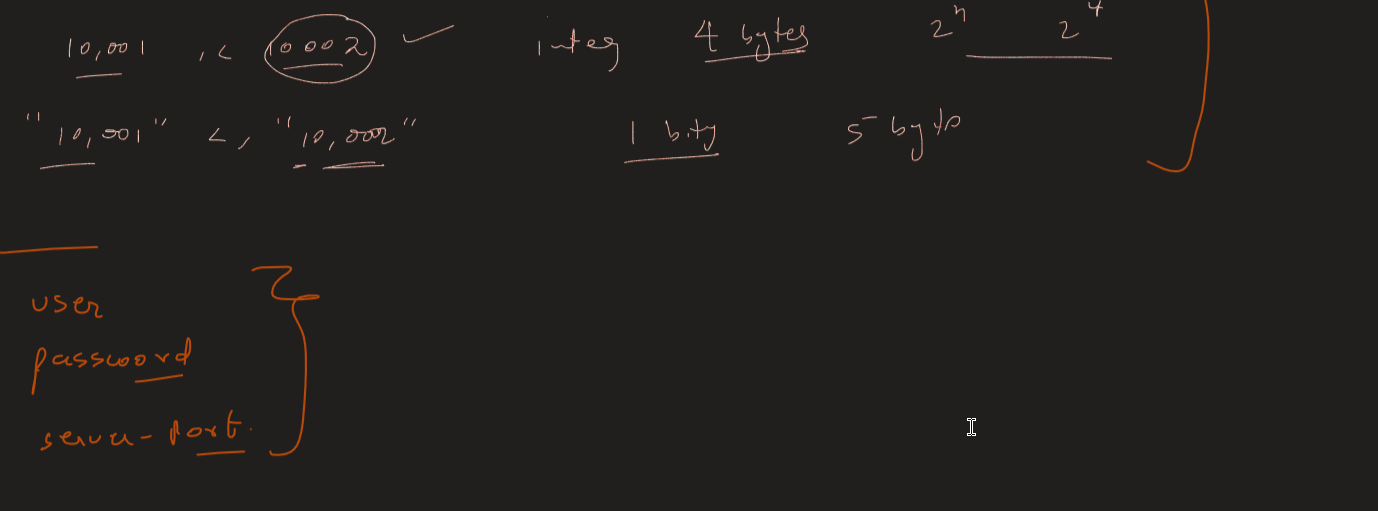 10,001 , < 10002 integ 4 bytes 2^n 2^4
"10,001" <, "10,002" 1 bity 5 byts
user
password
server-port.